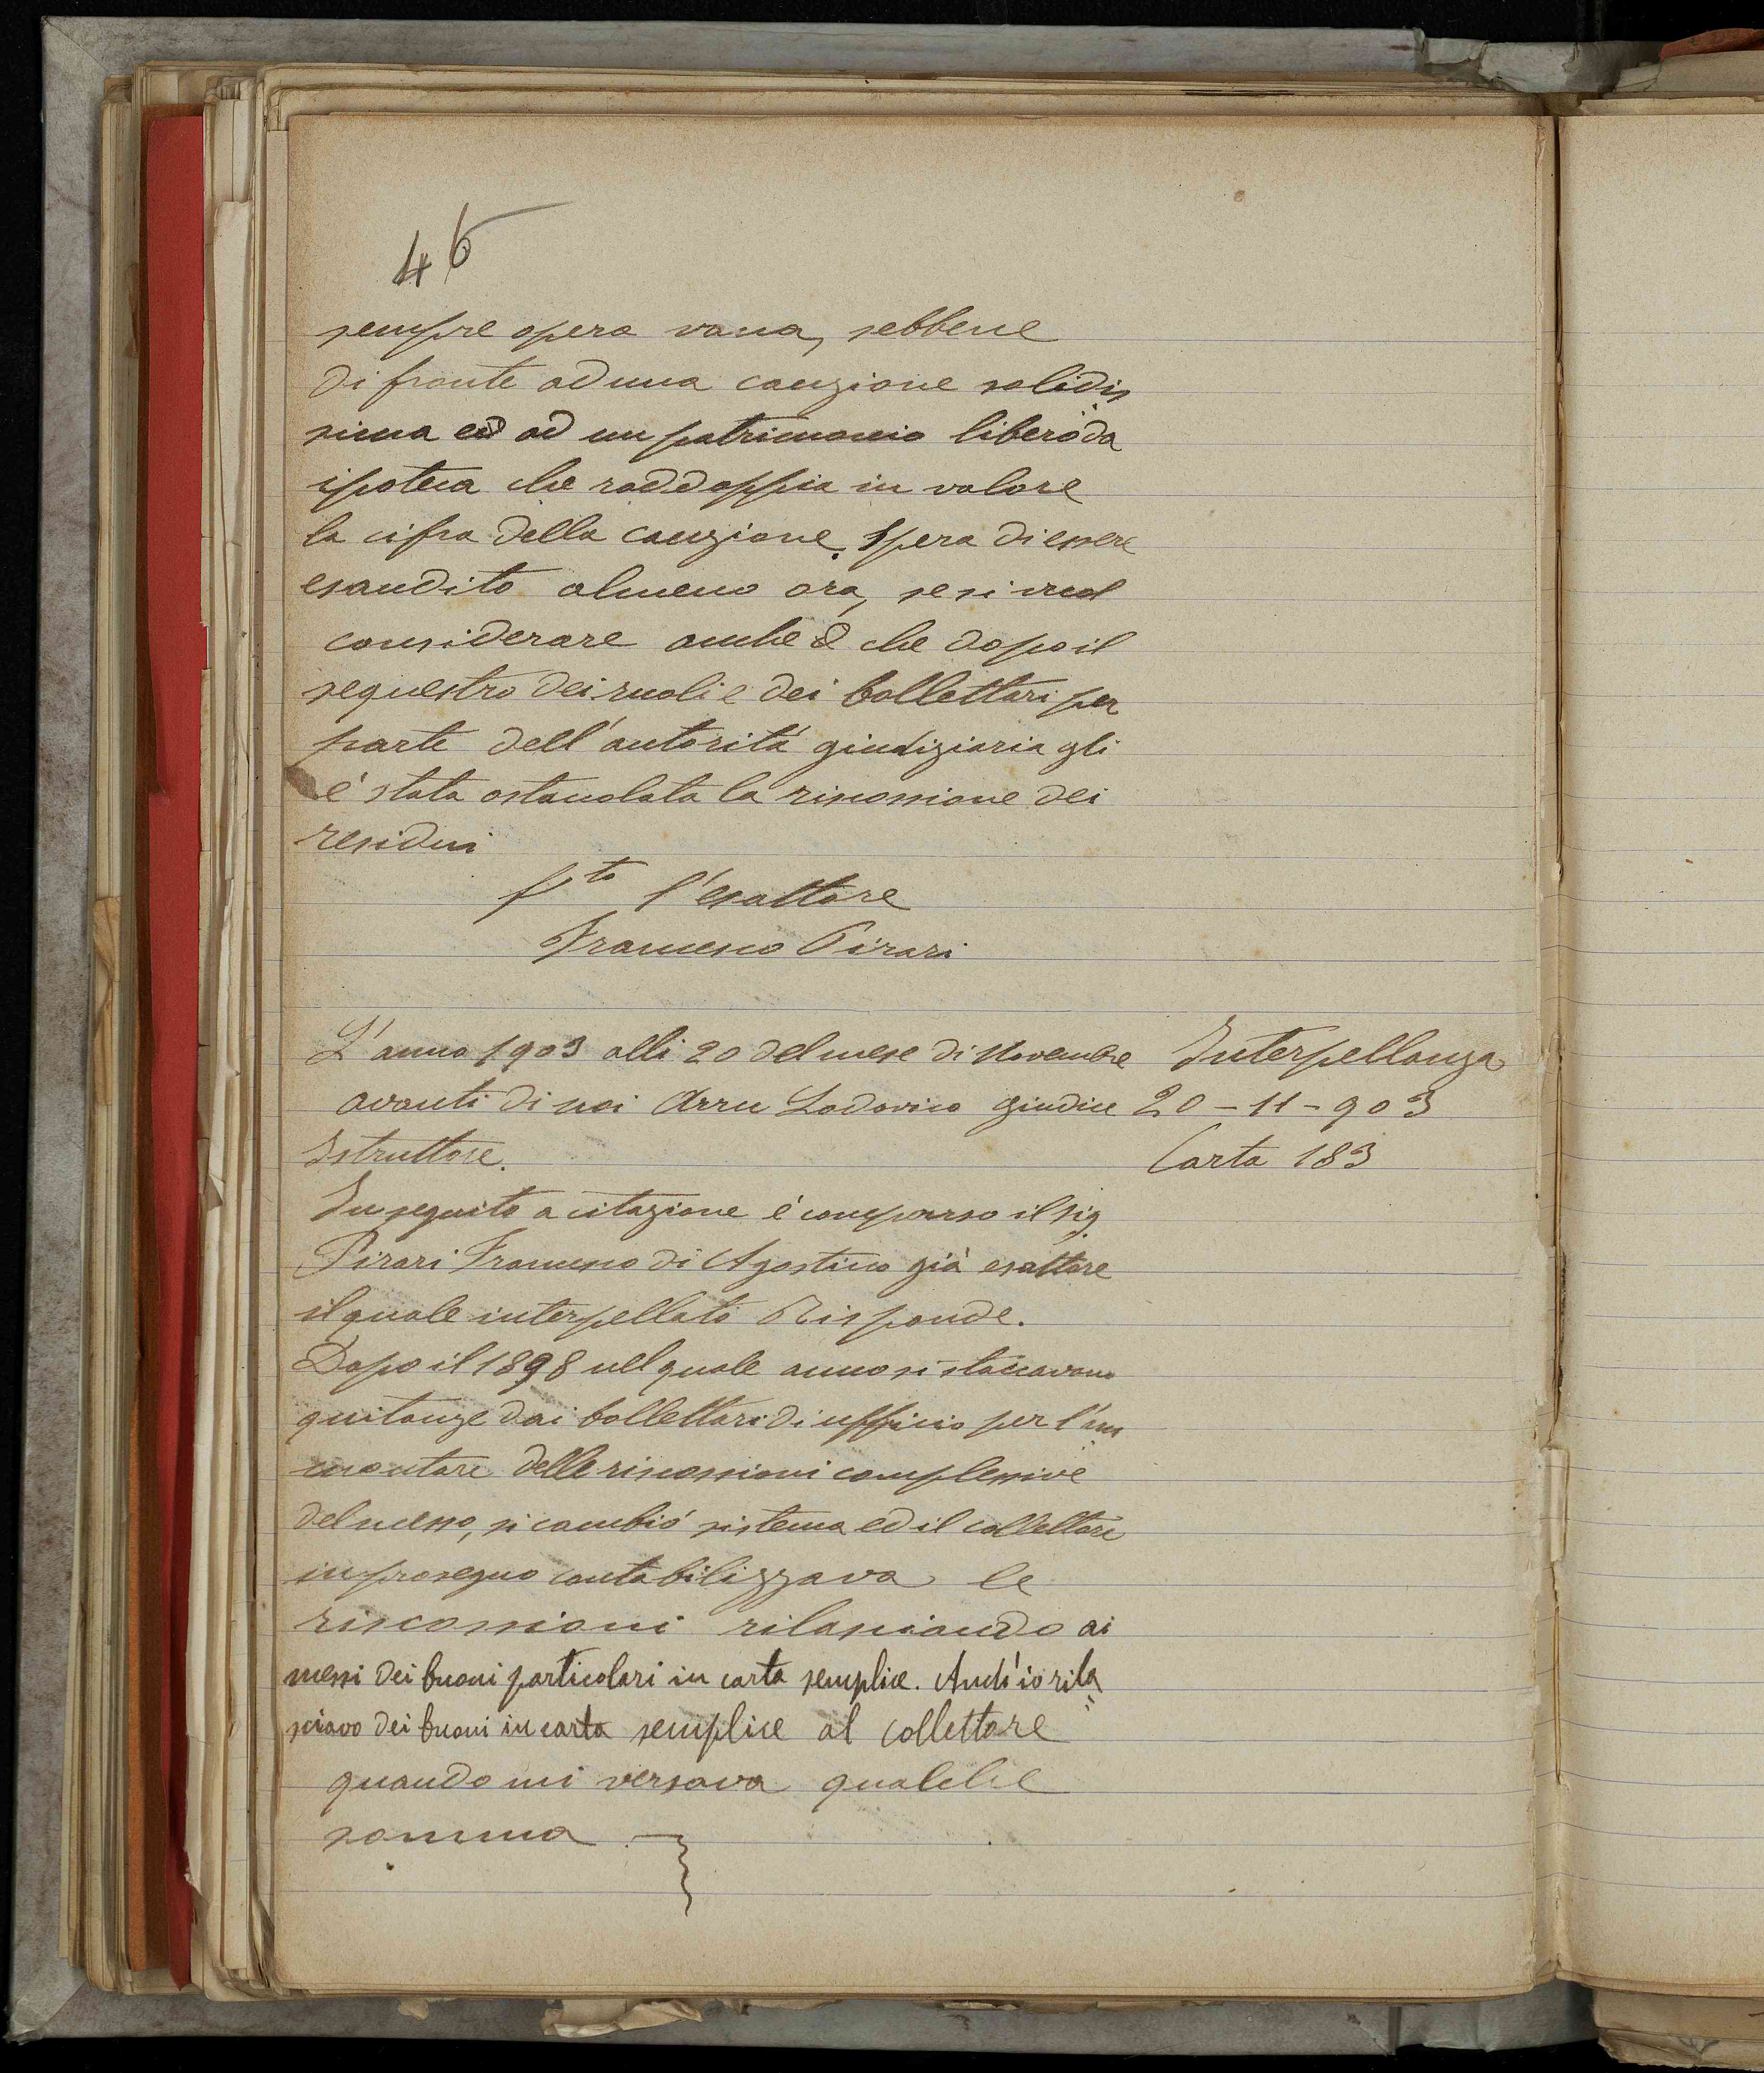 46
sempre opera vana, sebbene
di fronte ad una cauzione solidis
sima ed ad un patrimonio libero da
ipoteca che raddoppia in valore
la cifra della cauzione. Spera di essere
esaudito almeno ora, se si vuol
considerare anche che dopo il
sequestro dei ruoli e dei bollettari per
parte dell'autoritá giudiziaria gli
é stata ostacolata la riscossione dei
residui
fto l'esattore
Francesco Pirari
L'anno 1903 alli 20 del mese di Novembre Interpellanza
avanti di noi Arru Lodovico giudice 20-11-903
Istruttore. Carta 183
In seguito a citazione é comparso il sig.
Pirari Francesco di Agostino giá esattore
il quale interpellato Risponde.
Dopo il 1898 nel quale anno si staccavano
quitanze dai bollettari di ufficio per l'am
montare delle riscossioni complessive
del messo, si cambió sistema ed il collettore
in proseguo contabilizzava le
riscossioni rilasciando ai
messi dei buoni particolari in carta semplice. Anch'io rila
sciavo dei buoni in carta semplice al collettore
quando mi versava qualche
somma